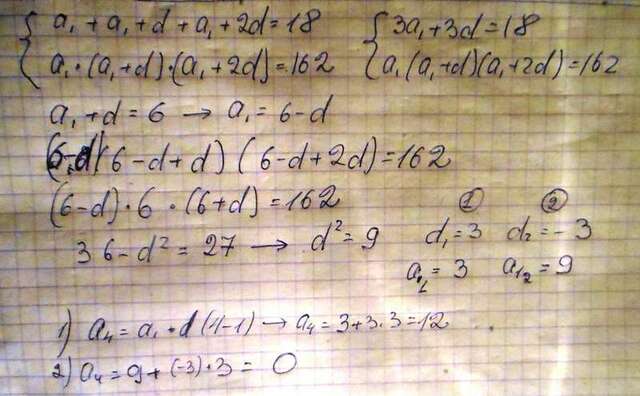 { a₁ + a₁ + d + a₁ + 2d = 18
{ a₁ · (a₁ + d) · (a₁ + 2d) = 162
{ 3a₁ + 3d = 18
{ a₁ (a₁ + d)(a₁ + 2d) = 162
a₁ + d = 6 → a₁ = 6 - d
(6-d)(6 - d + d) (6 - d + 2d) = 162
(6-d) · 6 · (6+d) = 162
36 - d² = 27 → d² = 9
① ②
d₁ = 3 d₂ = -3
a₁₁ = 3 a₁₂ = 9
1) a₄ = a₁ · d (4-1) → a₄ = 3 + 3 · 3 = 12
2) a₄ = 9 + (-3) · 3 = 0